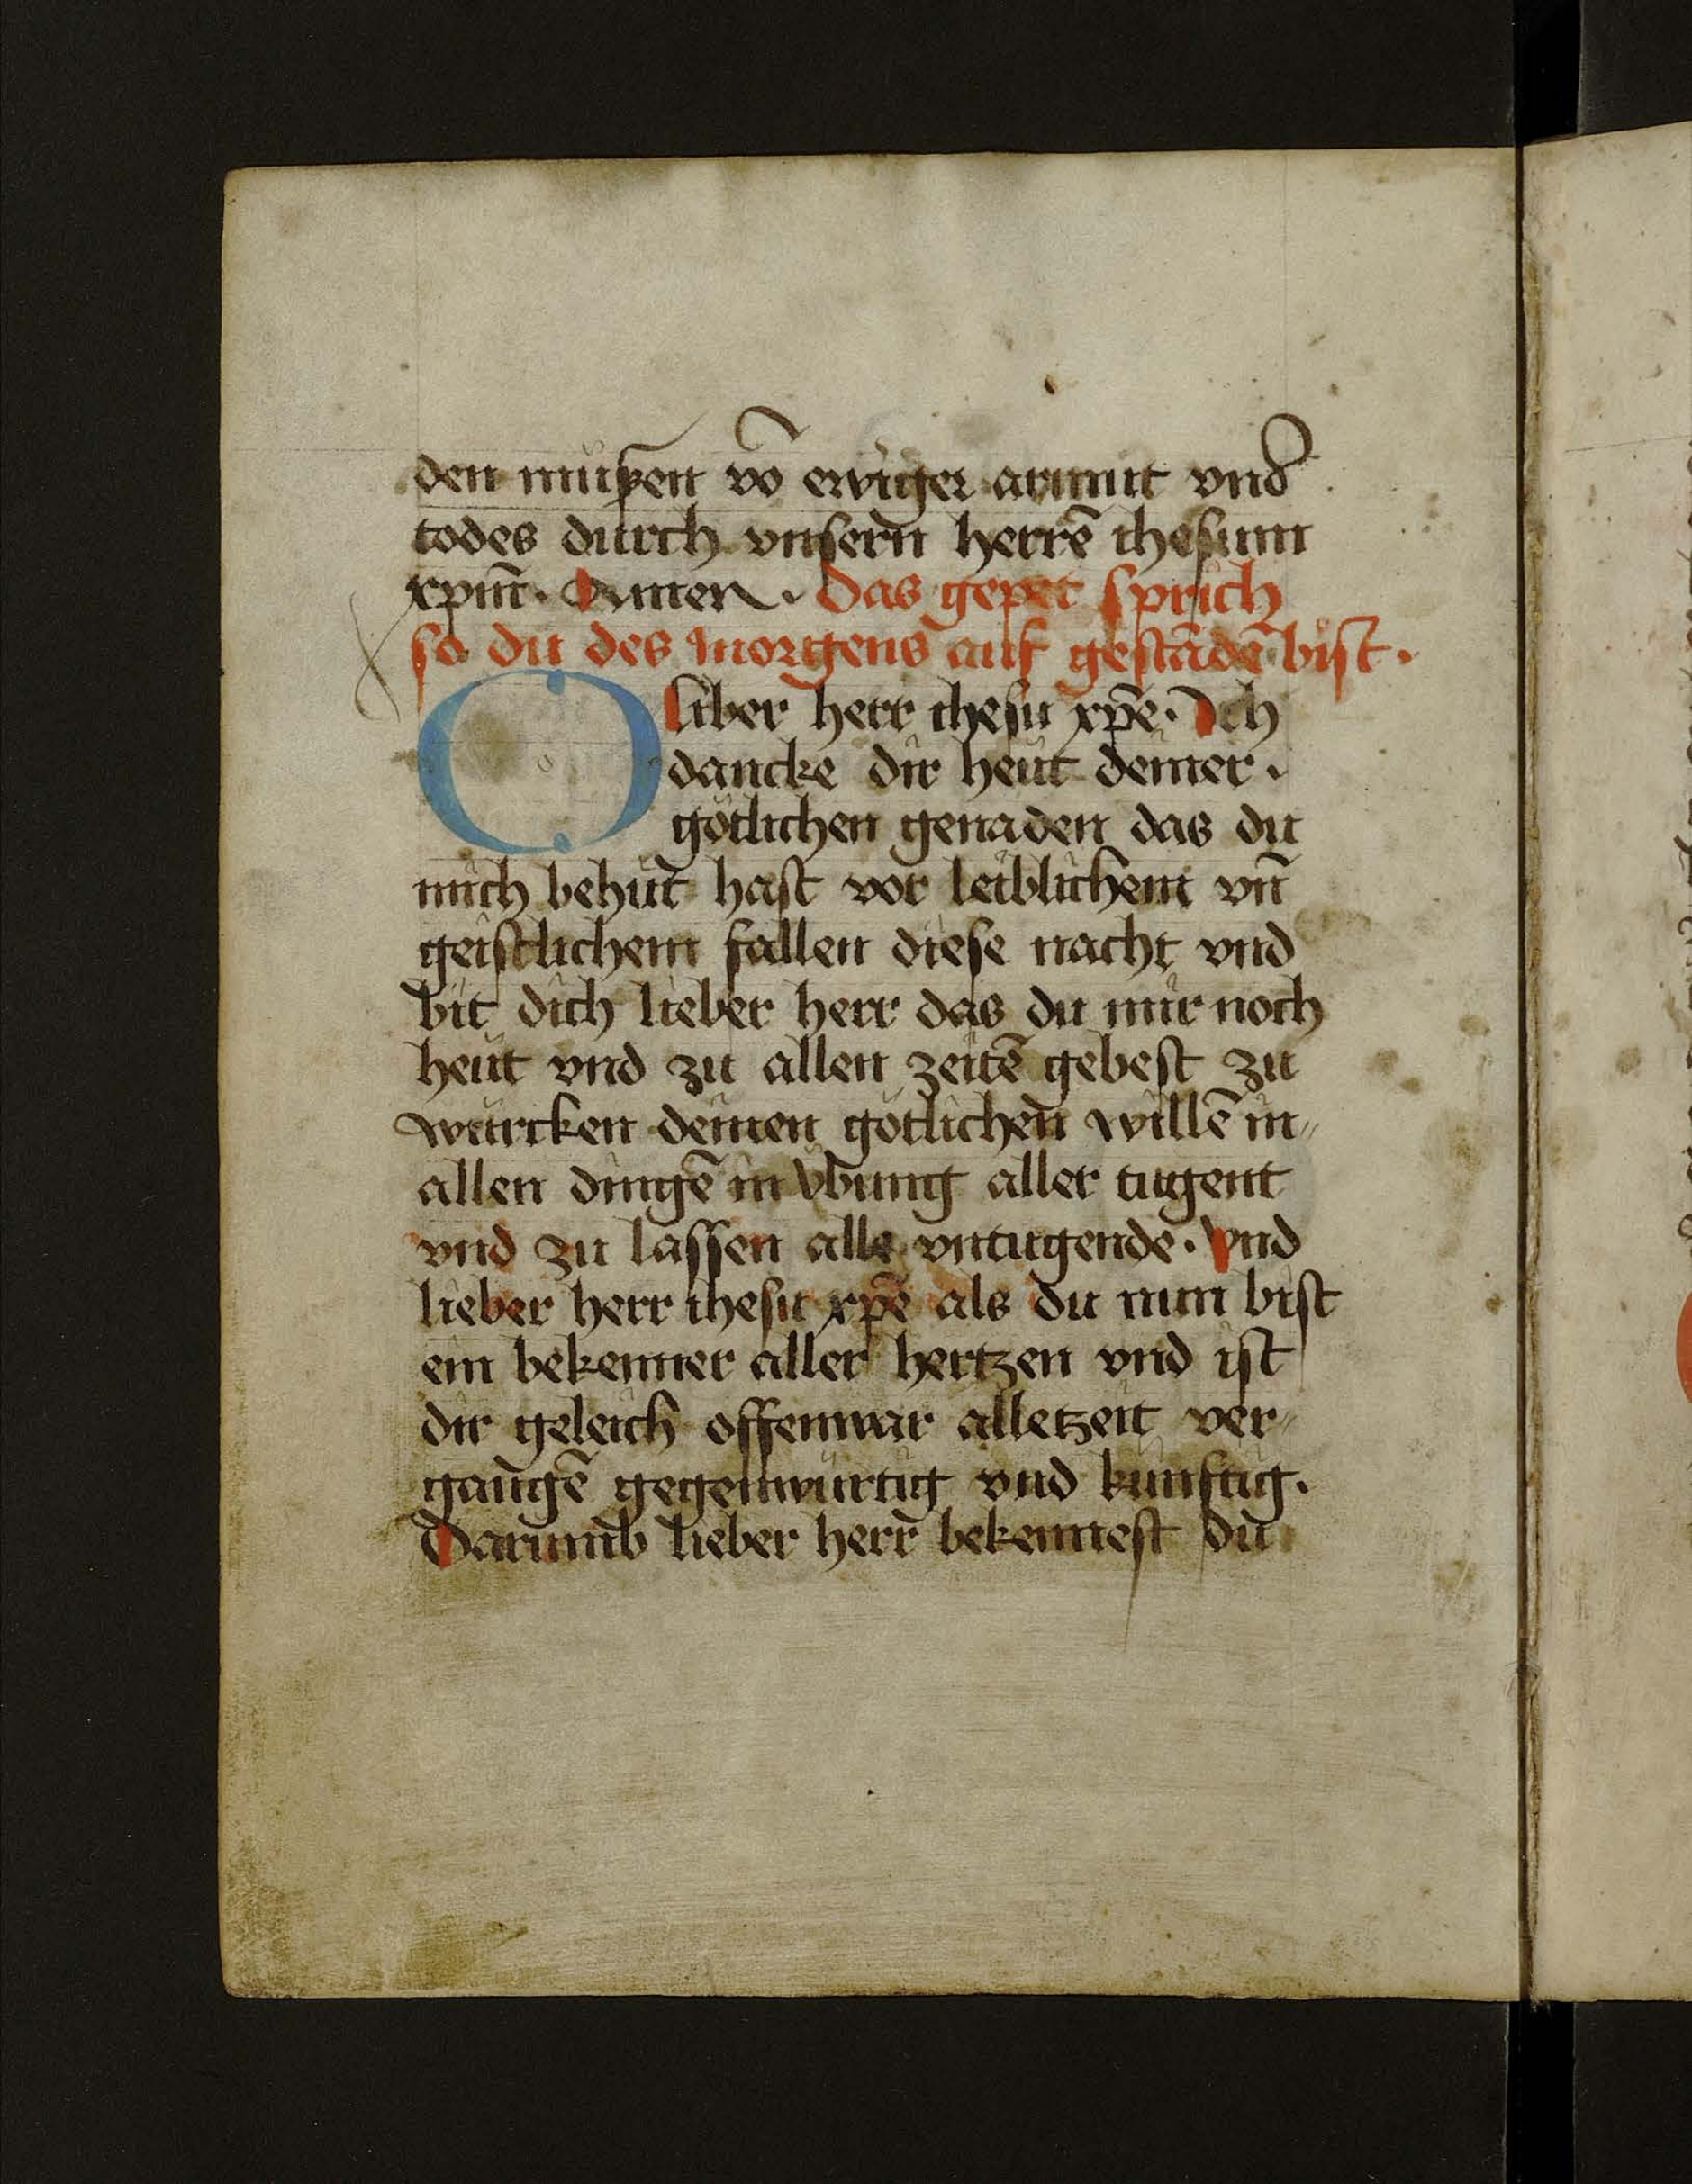 den müßen vō ewiger armut vnd
todes durch vnsern herrē ihesum
xpm̄. Amen. Das gepet sprich
so du des morgens auf gestādē bist.
O liber herr ihesu xp̄e. Ich
dancke dir heut deiner.
götlichen genaden das du
mich behüt hast vor leiblichem vn̄
geistlichem fallen diese nacht vnd
bit dich lieber herr das du mir noch
heut vnd zu allen zeitē gebest zu
würcken deinen götlichen willē in
allen dingē in vbung aller tugent
vnd zu lassen alle vntugende. Vnd
lieber herr ihesu xp̄e als du nun bist
ein bekenner aller hertzen vnd ist
dir geleich offenwar alletzeit ver-
gangē gegenwürtig vnd künftig.
Darumb lieber herr bekennest du